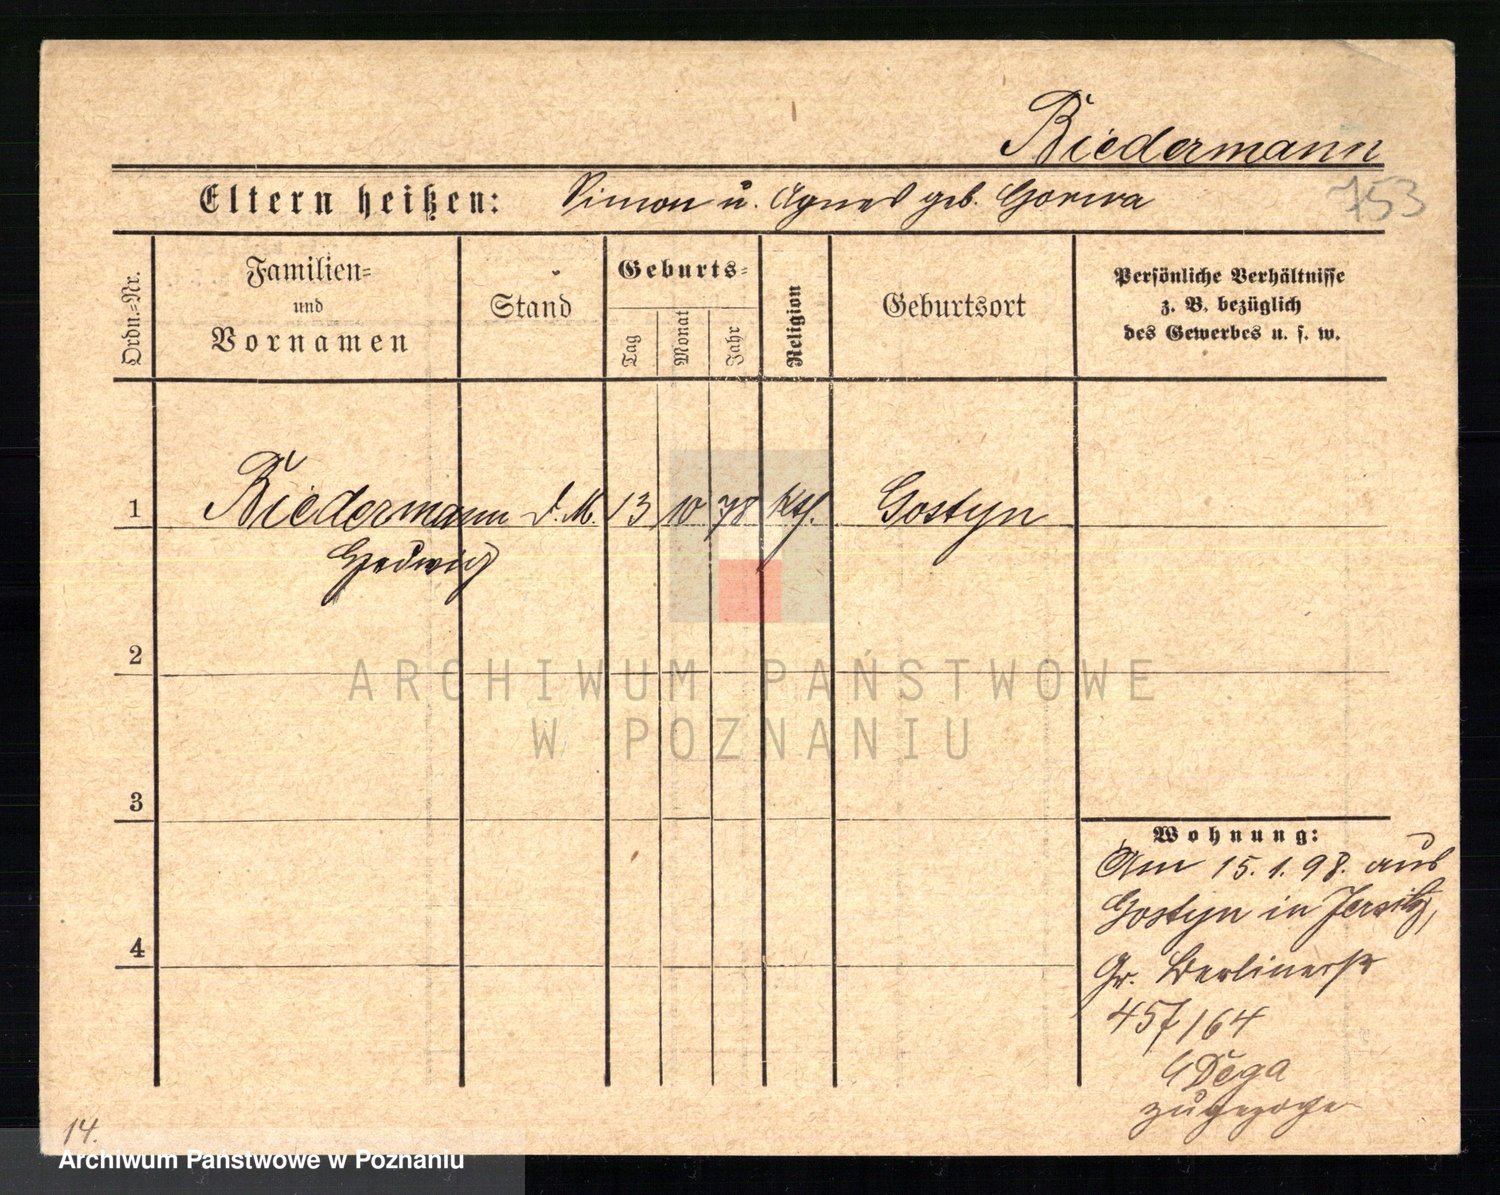 Biedermann
753
Eltern heißen: Simon u. Agnes geb. Gorwa
Ordn.=Nr.
Familien=
und
Vornamen
Stand
Geburts=
Tag
Monat
Jahr
Religion
Geburtsort
Persönliche Verhältnisse
z. B. bezüglich
des Gewerbes u. s. w.
1 Biedermann d. M. 13 10 78 kth. Gostyn
Hedwig
2
3
4
ARCHIWUM PAŃSTWOWE
W POZNANIU
Wohnung:
Am 15.1.98. aus
Gostyn in Jersitz,
Gr. Berlinerstr
457/64
Dega
zugezogen
14.
Archiwum Państwowe w Poznaniu